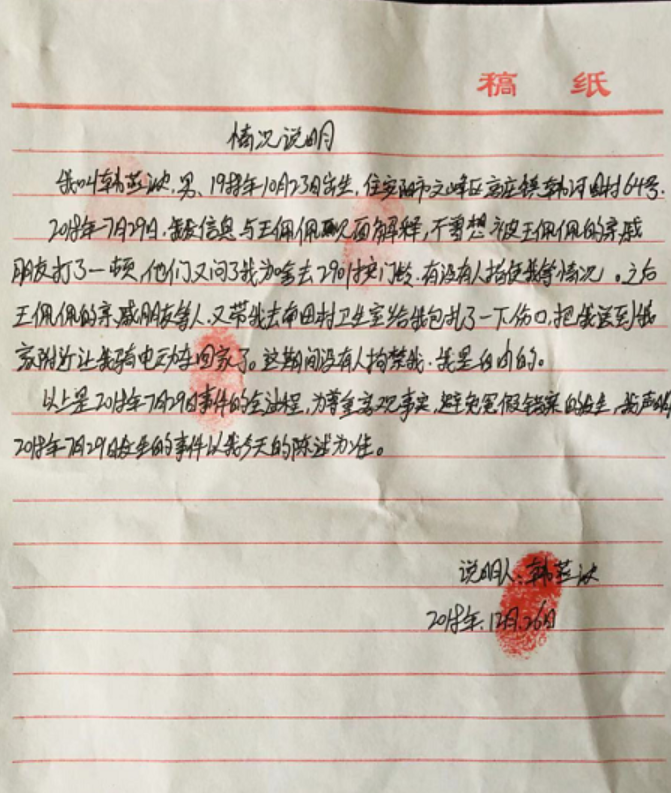 稿 纸
情况说明
我叫韩燕波,男、1988年10月23日出生,住安阳市文峰区高庄镇韩河固村64号.
2018年7月29日.我发信息与王佩佩见面解释,不曾想被王佩佩的亲戚
朋友打了一顿,他们又问了我为啥去2901按门铃.有没有人指使我等情况。之后
王佩佩的亲戚朋友等人.又带我去南田村卫生室给我包扎了一下伤口,把我送到我
家附近让我骑电动车回家了。这期间没有人拘禁我.我是自由的。
以上是2018年7月29日事件的全过程,为尊重客观事实,避免冤假错案的发生,我声明
2018年7月29日发生的事件以我今天的陈述为准。
说明人:韩燕波
2018年.12月.26日